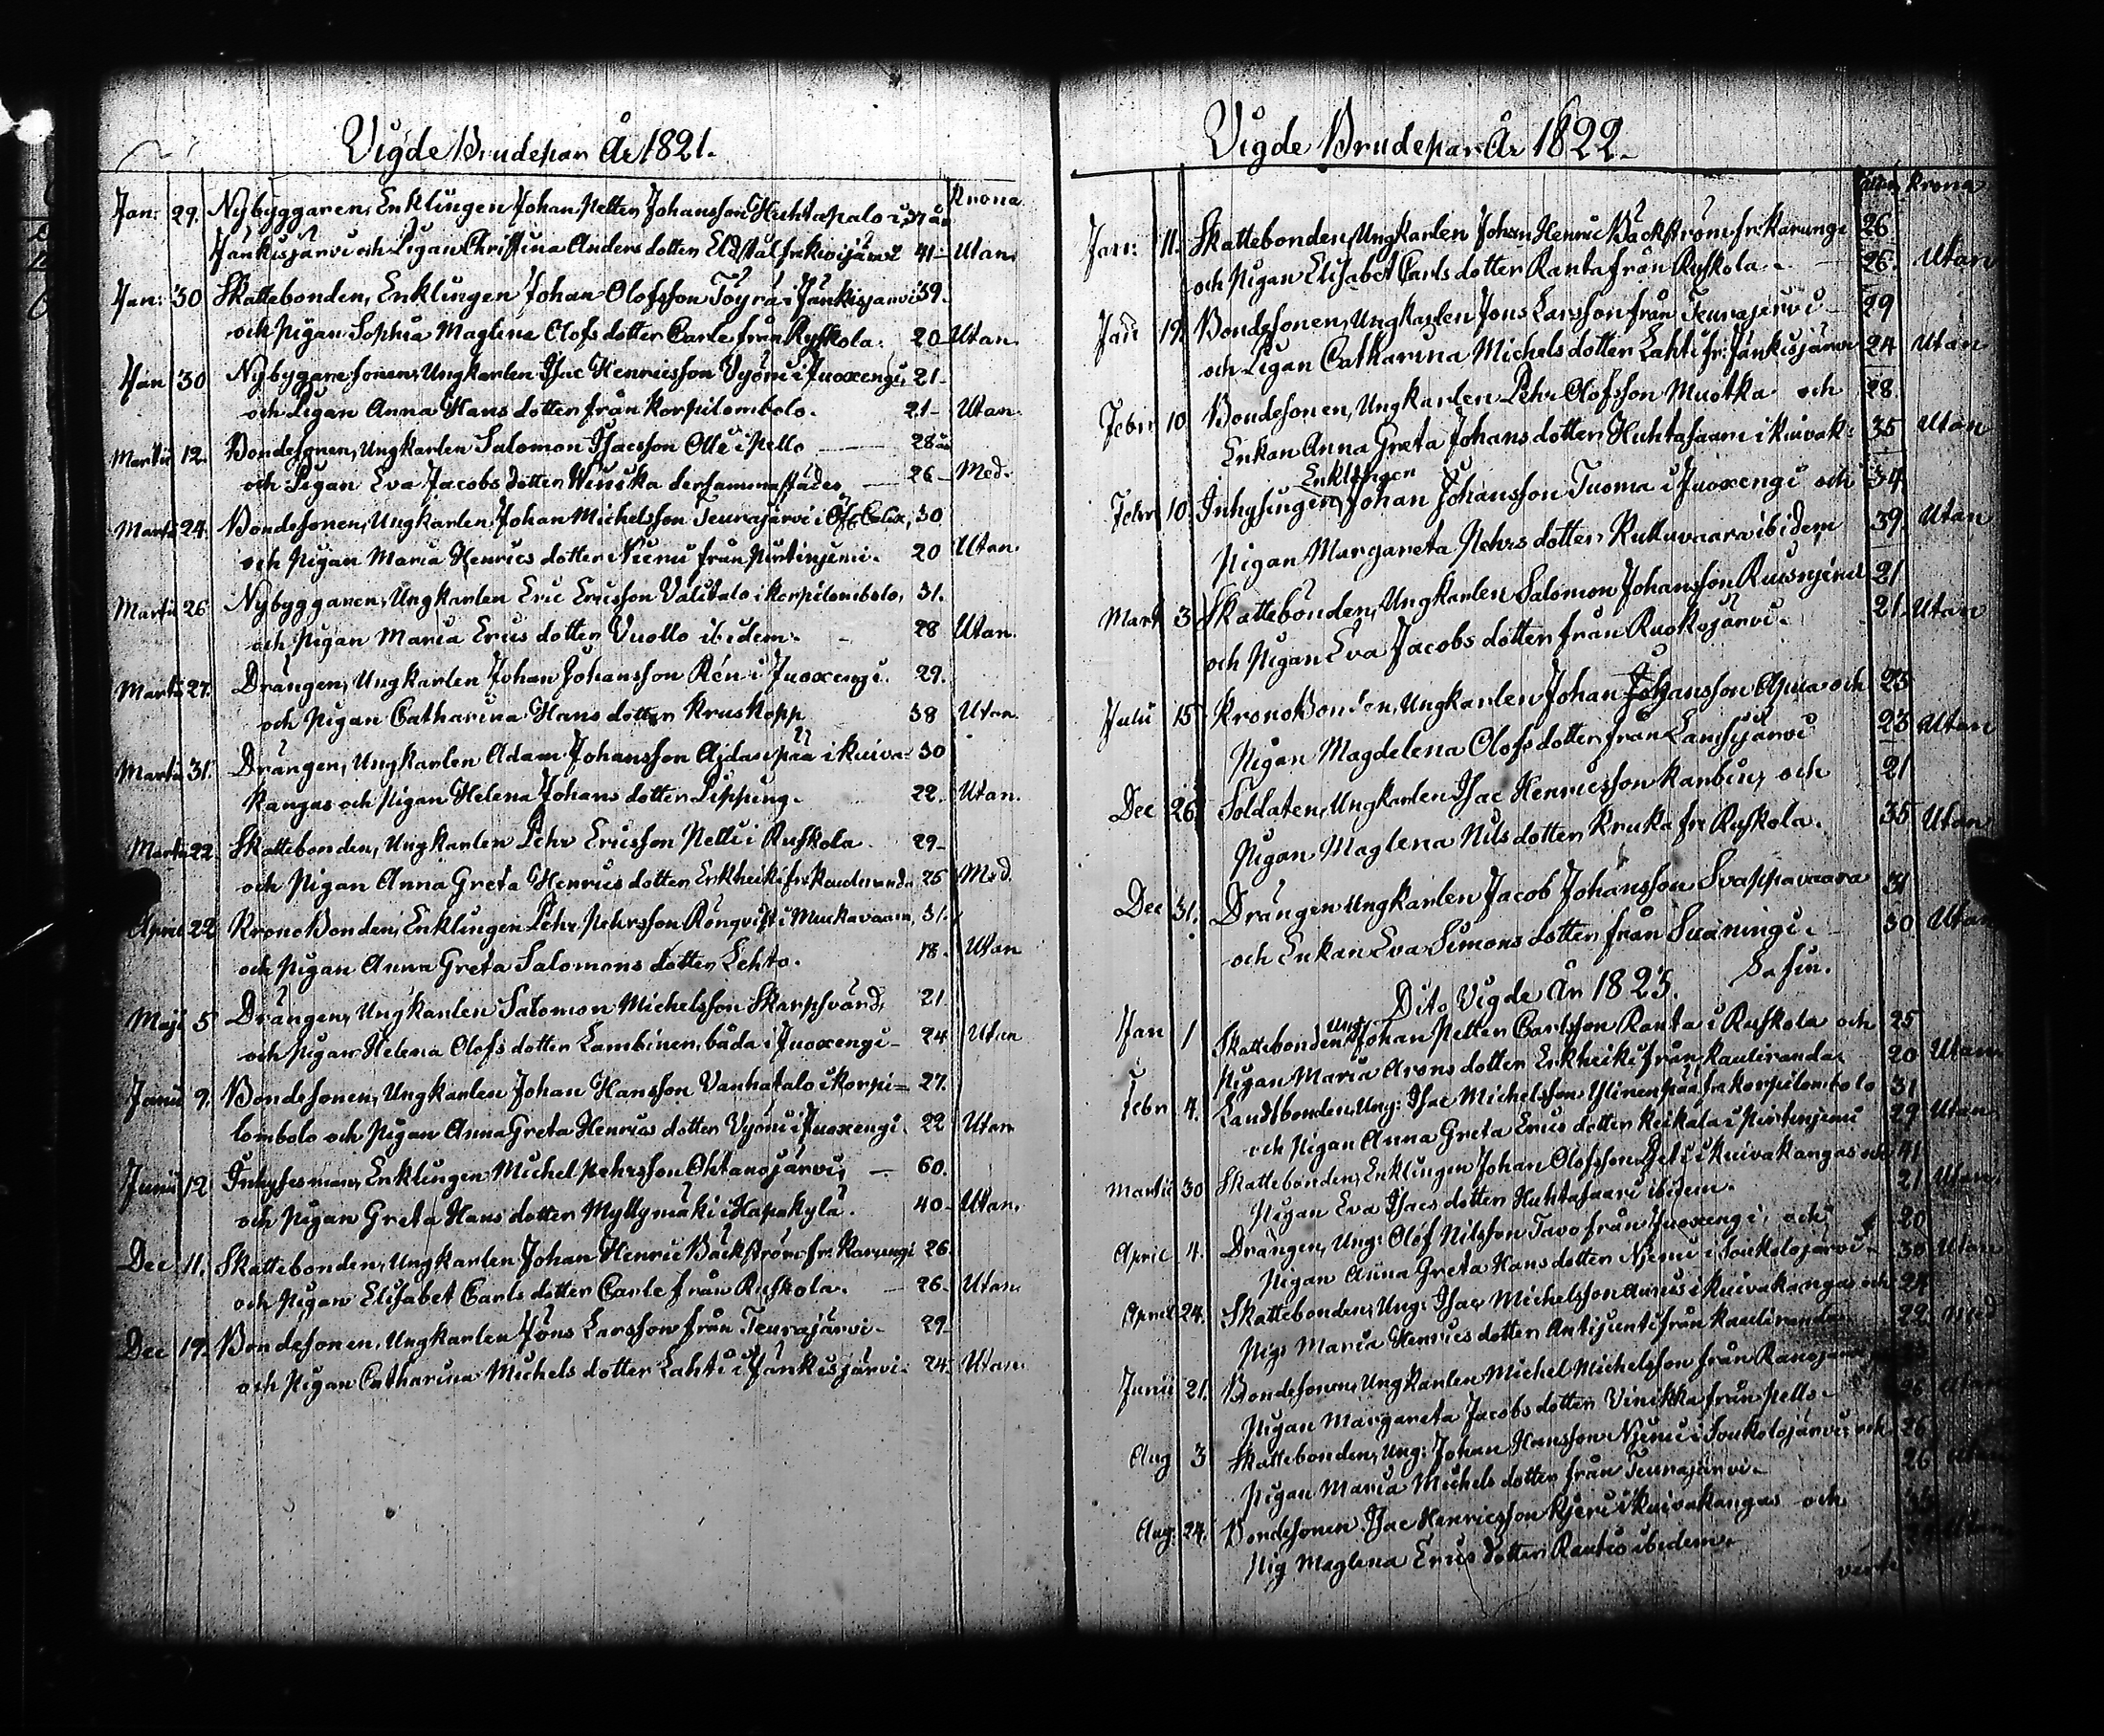 Vigde Brudepar År 1821.
Krona
Jan: 29. Nybyggaren, Enklingen Johan Petter Johansson Huhtapalo i 37 år
Jänkisjärvi och Pigan Christina Anders dotter Eldstål fr. 41 - Utan
Jan: 30 Skattebonden, Enklingen Johan Olofsson Töyrä i Jänkisjärvi 39.
och Pigan Sophia Maglena Olofs dotter Carle från Ruskola. 20 Utan.
Jan 30 Nybyggaresonen, Ungkarlen Isac Henricsson Vyöni i Juoxengi, 21-
och Pigan Anna Hans dotter från Korpilombolo. 21- Utan.
Martii 12. Bondesonen, Ungkarlen Salomon Isacsson Olli i Pello 28 år
och Pigan Eva Jacobs dotter Winika dersammastädes 26 - Med.
Martii 24. Bondesonen, Ungkarlen Johan Michelsson Teurajärvi i Öf. Calix, 30
och Pigan Maria Henrics dotter Niemi från Pirtiniemi. 20 Utan.
Martii 26. Nybyggaren, Ungkarlen Eric Ericsson Välitalo i Korpilombolo, 31.
och Pigan Maria Erics dotter Vuollo ibidem. - 28 Utan.
Martii 27. Drängen, Ungkarlen Johan Johansson Rén i Juoxengi. 29.
och Pigan Catharina Hans dotter Kruskopp 38 Utan.
Martii 31. Drängen, Ungkarlen Adam Johansson Aidanpää i Kuiva- 30
kangas och Pigan Helena Johans dotter Lipping. 22. Utan.
Martii 22. Skattebonden, Ungkarlen Pehr Ericsson Pelli i Ruskola 29-
och Pigan Anna Greta Henrics dotter Erkheiki fr. Kauliranda 25 Med.
April 22 KronoBonden, Enklingen Pehr Pehrsson Rönqvist i Muckavaara, 31.
och Pigan Anna Greta Salomons dotter Lehto. 18. Utan
Maji 5 Drängen, Ungkarlen Salomon Michelsson Skarpsvärd, 21
och Pigan Helena Olofs dotter Lambinen, båda i Juoxengi - 24 Utan
Junii 9. Bondesonen, Ungkarlen Johan Hansson Vanhatalo i Korpi= 27.
lombolo och Pigan Anna Greta Henrics dotter Vyöni i Juoxengi. 22 Utan
Junii 12 Inhysesman, Enklingen Michel Pehrsson Ohtanajärvi, - 60.
och Pigan Greta Hans dotter Myllymäki i Hapakylä. 40 - Utan.
Dec 11. Skattebonden, Ungkarlen Johan Henric Bäckström fr. Karungi 26.
och Pigan Elisabet Carls dotter Carle från Ruskola. - 26. Utan.
Dec 19. Bondesonen, Ungkarlen Jöns Larsson från Teurajärvi - 29-
och Pigan Catharina Michels dotter Lahti i Jänkisjärvi. 24. Utan.
Vigde Brudepar År 1822.
Krona
Jan: 11. Skattebonden, Ungkarlen Johan Henric Bäckström fr. Karungi 26
och Pigan Elisabet Carls dotter Ranta från Ruskola. - 26. Utan
Jan 19. Bondesonen, Ungkarlen Jöns Larsson från Teurajärvi - 29
och Pigan Catharina Michels dotter Lahti fr. Jänkisjärvi 24 Utan
Febr 10. Bondesonen, Ungkarlen Pehr Olofsson Muotka och 28.
Enkan Anna Greta Johans dotter Huhtasaari i Kuivak: 35 Utan
Enklingen
Febr 10. Inhysingen, Johan Johansson Tuoma i Juoxengi och 34
Pigan Margareta Pehrs dotter Kukuvaara ibidem 39. Utan
Mart. 3. Skattebonden, Ungkarlen Salomon Johansson 21
och Pigan Eva Jacobs dotter från Ruokojärvi. 21. Utan
Julii 15 KronoBonden, Ungkarlen Johan Johansson Apua och 25
Pigan Magdelena Olofs dotter från Lansijärvi 23 Utan
Dec 26. Soldaten, Ungkarlen Isac Henricsson Karbin, och 21
Pigan Maglena Nils dotter Kruka fr. Ruskola. 35 Utan
Dec 31. Drängen Ungkarlen Jacob Johansson Svappavaara 31
och Enkan Eva Simons dotter från Suaningi. 30 Utan
S. fin.
Dito Vigde År 1823.
Jan 1 Skattebonden Ung: Johan Petter Carlsson Ranta i Ruskola och 25
Pigan Maria Arons dotter Erkheiki från Kauliranda. 20 Utan
Febr 4. Landtbonden, Ung: Isac Michelsson Ylinenpää fr. Korpilombolo 31
och Pigan Anna Greta Erics dotter Keikala i Pirtiniemi 29 Utan
Martii 30 Skattebonden, Enklingen Johan Olofsson i Kuivakangas och 41
Pigan Eva Isacs dotter Huhtasaari ibidem. 21 Utan
April 4. Drängen, Ung: Olof Nilsson Tavo från Juoxengi, och 20
Pigan Anna Greta Hans dotter Niemi i Soukolojärvi. 30 Utan
April 24. Skattebonden, Ung: Isac Michelsson i Kuivakangas och 24
Pig: Maria Henrics dotter Antijunti från Kauliranda 22 Med
Junii 21. Bondesonen, Ungkarlen Michel Michelsson från
Pigan Margareta Jacobs dotter Vinikka från Pello. 26 Utan
Aug 3 Skattebonden, Ung: Johan Hansson Niemi i Soukolojärvi, och 26
Pigan Maria Michels dotter från Teurajärvi. 26
Aug: 24. Bondesonen Isac Henricsson Kjeri i Kuivakangas och
Pig Maglena Erics dotter Rautio ibidem. Utan
verte